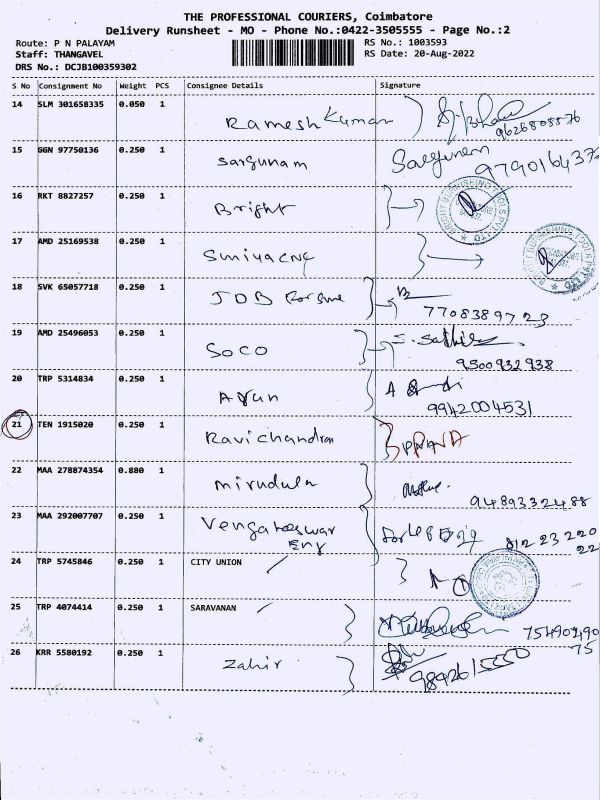 THE PROFESSIONAL COURIERS, Coimbatore
Delivery Runsheet - MO - Phone No.:0422-3505555 - Page No.:2
Route: P N PALAYAM RS No.: 1003593
Staff: THANGAVEL RS Date: 20-Aug-2022
DRS No.: DCJB100359302
S No Consignment No Weight PCS Consignee Details Signature
14 SLM 301658335 0.050 1 Ramesh Kumar 9626808576
15 GGN 97750136 0.250 1 Sargunam Sargunam 979016437
16 RKT 8827257 0.250 1 Bright
17 AMD 25169538 0.250 1
18 SVK 65057718 0.250 1 JDB 7708389723
19 AMD 25496053 0.250 1 SOCO 9500932938
20 TRP 5314834 0.250 1 Arjun 9942004531
21 TEN 1915020 0.250 1 Ravichandran
22 MAA 278874354 0.880 1 Mirudula 9489332488
23 MAA 292007707 0.250 1 Vengateeswar
Eng
24 TRP 5745846 0.250 1 CITY UNION
25 TRP 4074414 0.250 1 SARAVANAN
75
26 KRR 5580192 0.250 1 Zahir 9842615550